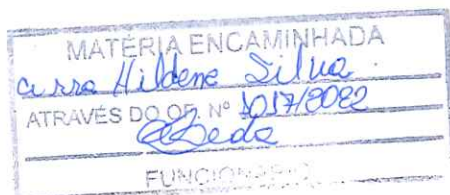 MATÉRIA ENCAMINHADA
a sra Hildene Silva
ATRAVÉS DO OF. Nº 1017/2022
FUNCIONÁRIO